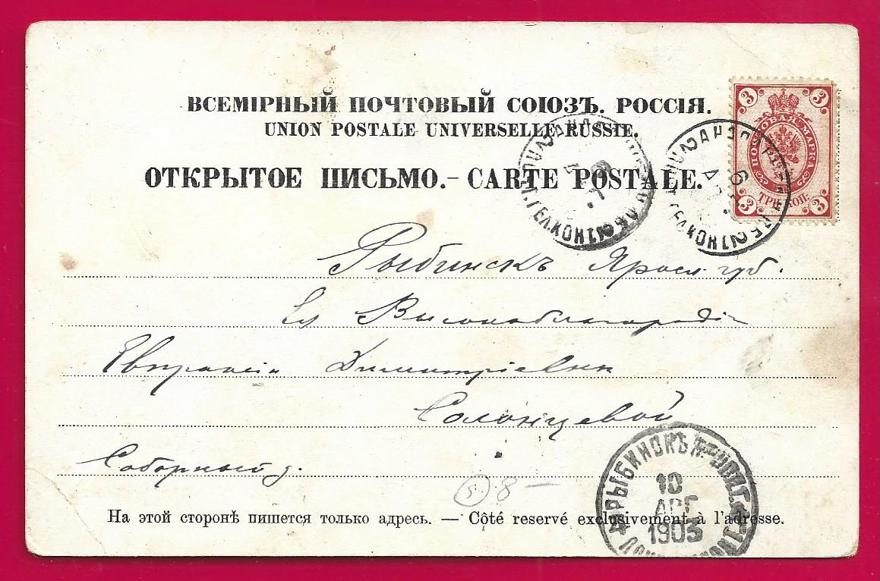 ВСЕМІРНЫЙ ПОЧТОВЫЙ СОЮЗЪ. РОССІЯ.
UNION POSTALE UNIVERSELLE RUSSIE.
ОТКРЫТОЕ ПИСЬМО. – CARTE POSTALE.
3 3
ПОЧТОВАЯ МАРКА
ТРИ КОП.
3 3
Рыбинскъ Яросл. губ.
Ея Высокоблагородію
Евпраксіи Димитріевнѣ
Солонцевой
Соборный д.
8 –
РЫБИНСКЪ
10
АПГ
1905
На этой сторонѣ пишется только адресъ. — Côté reservé exclusivement à l'adresse.